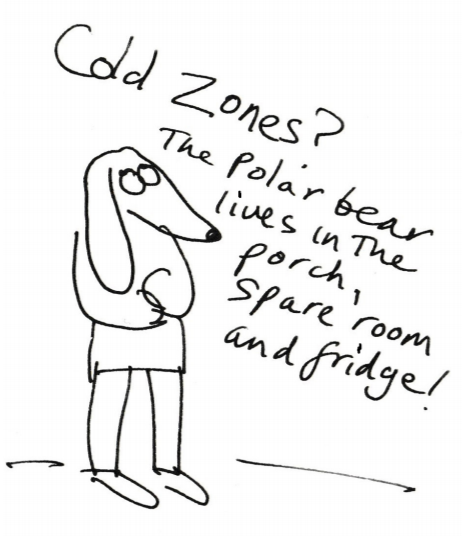 Cold Zones?
The polar bear
lives in The
porch,
spare room
and fridge!